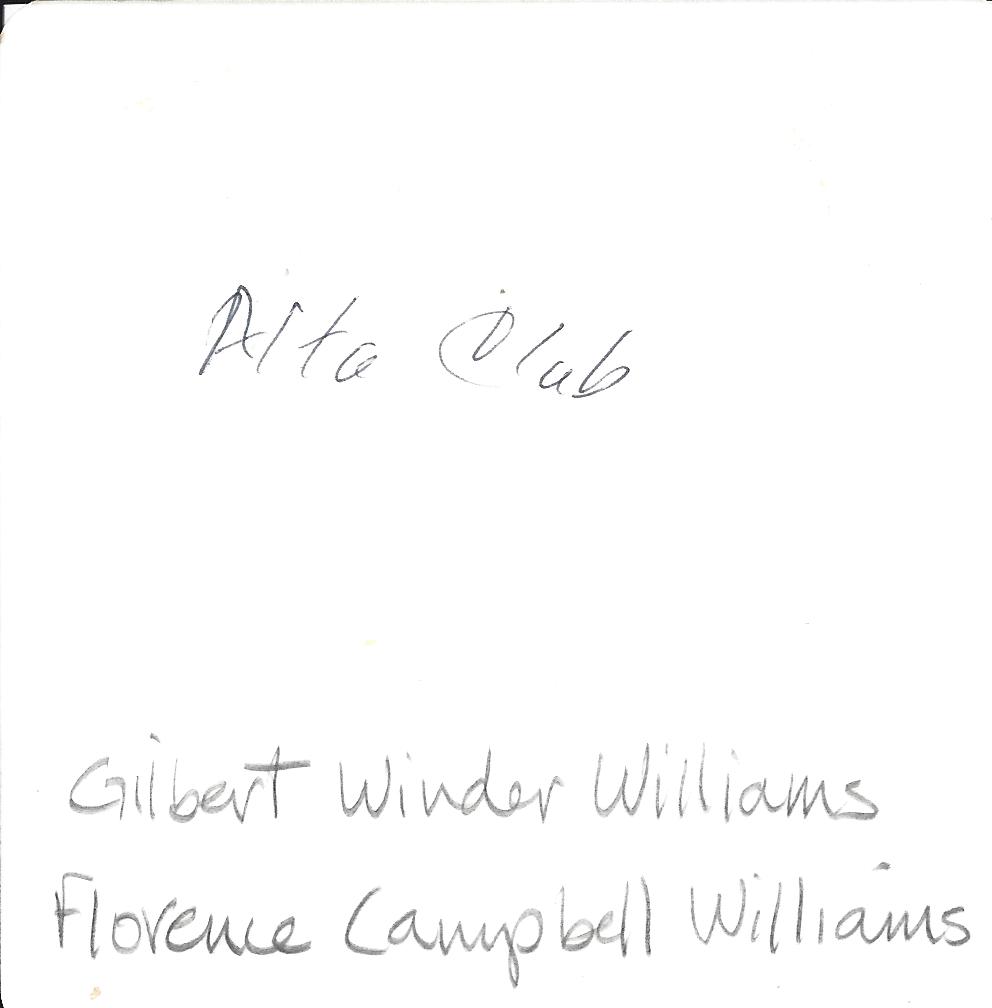 Alta Club
Gilbert Winder Williams
Florence Campbell Williams